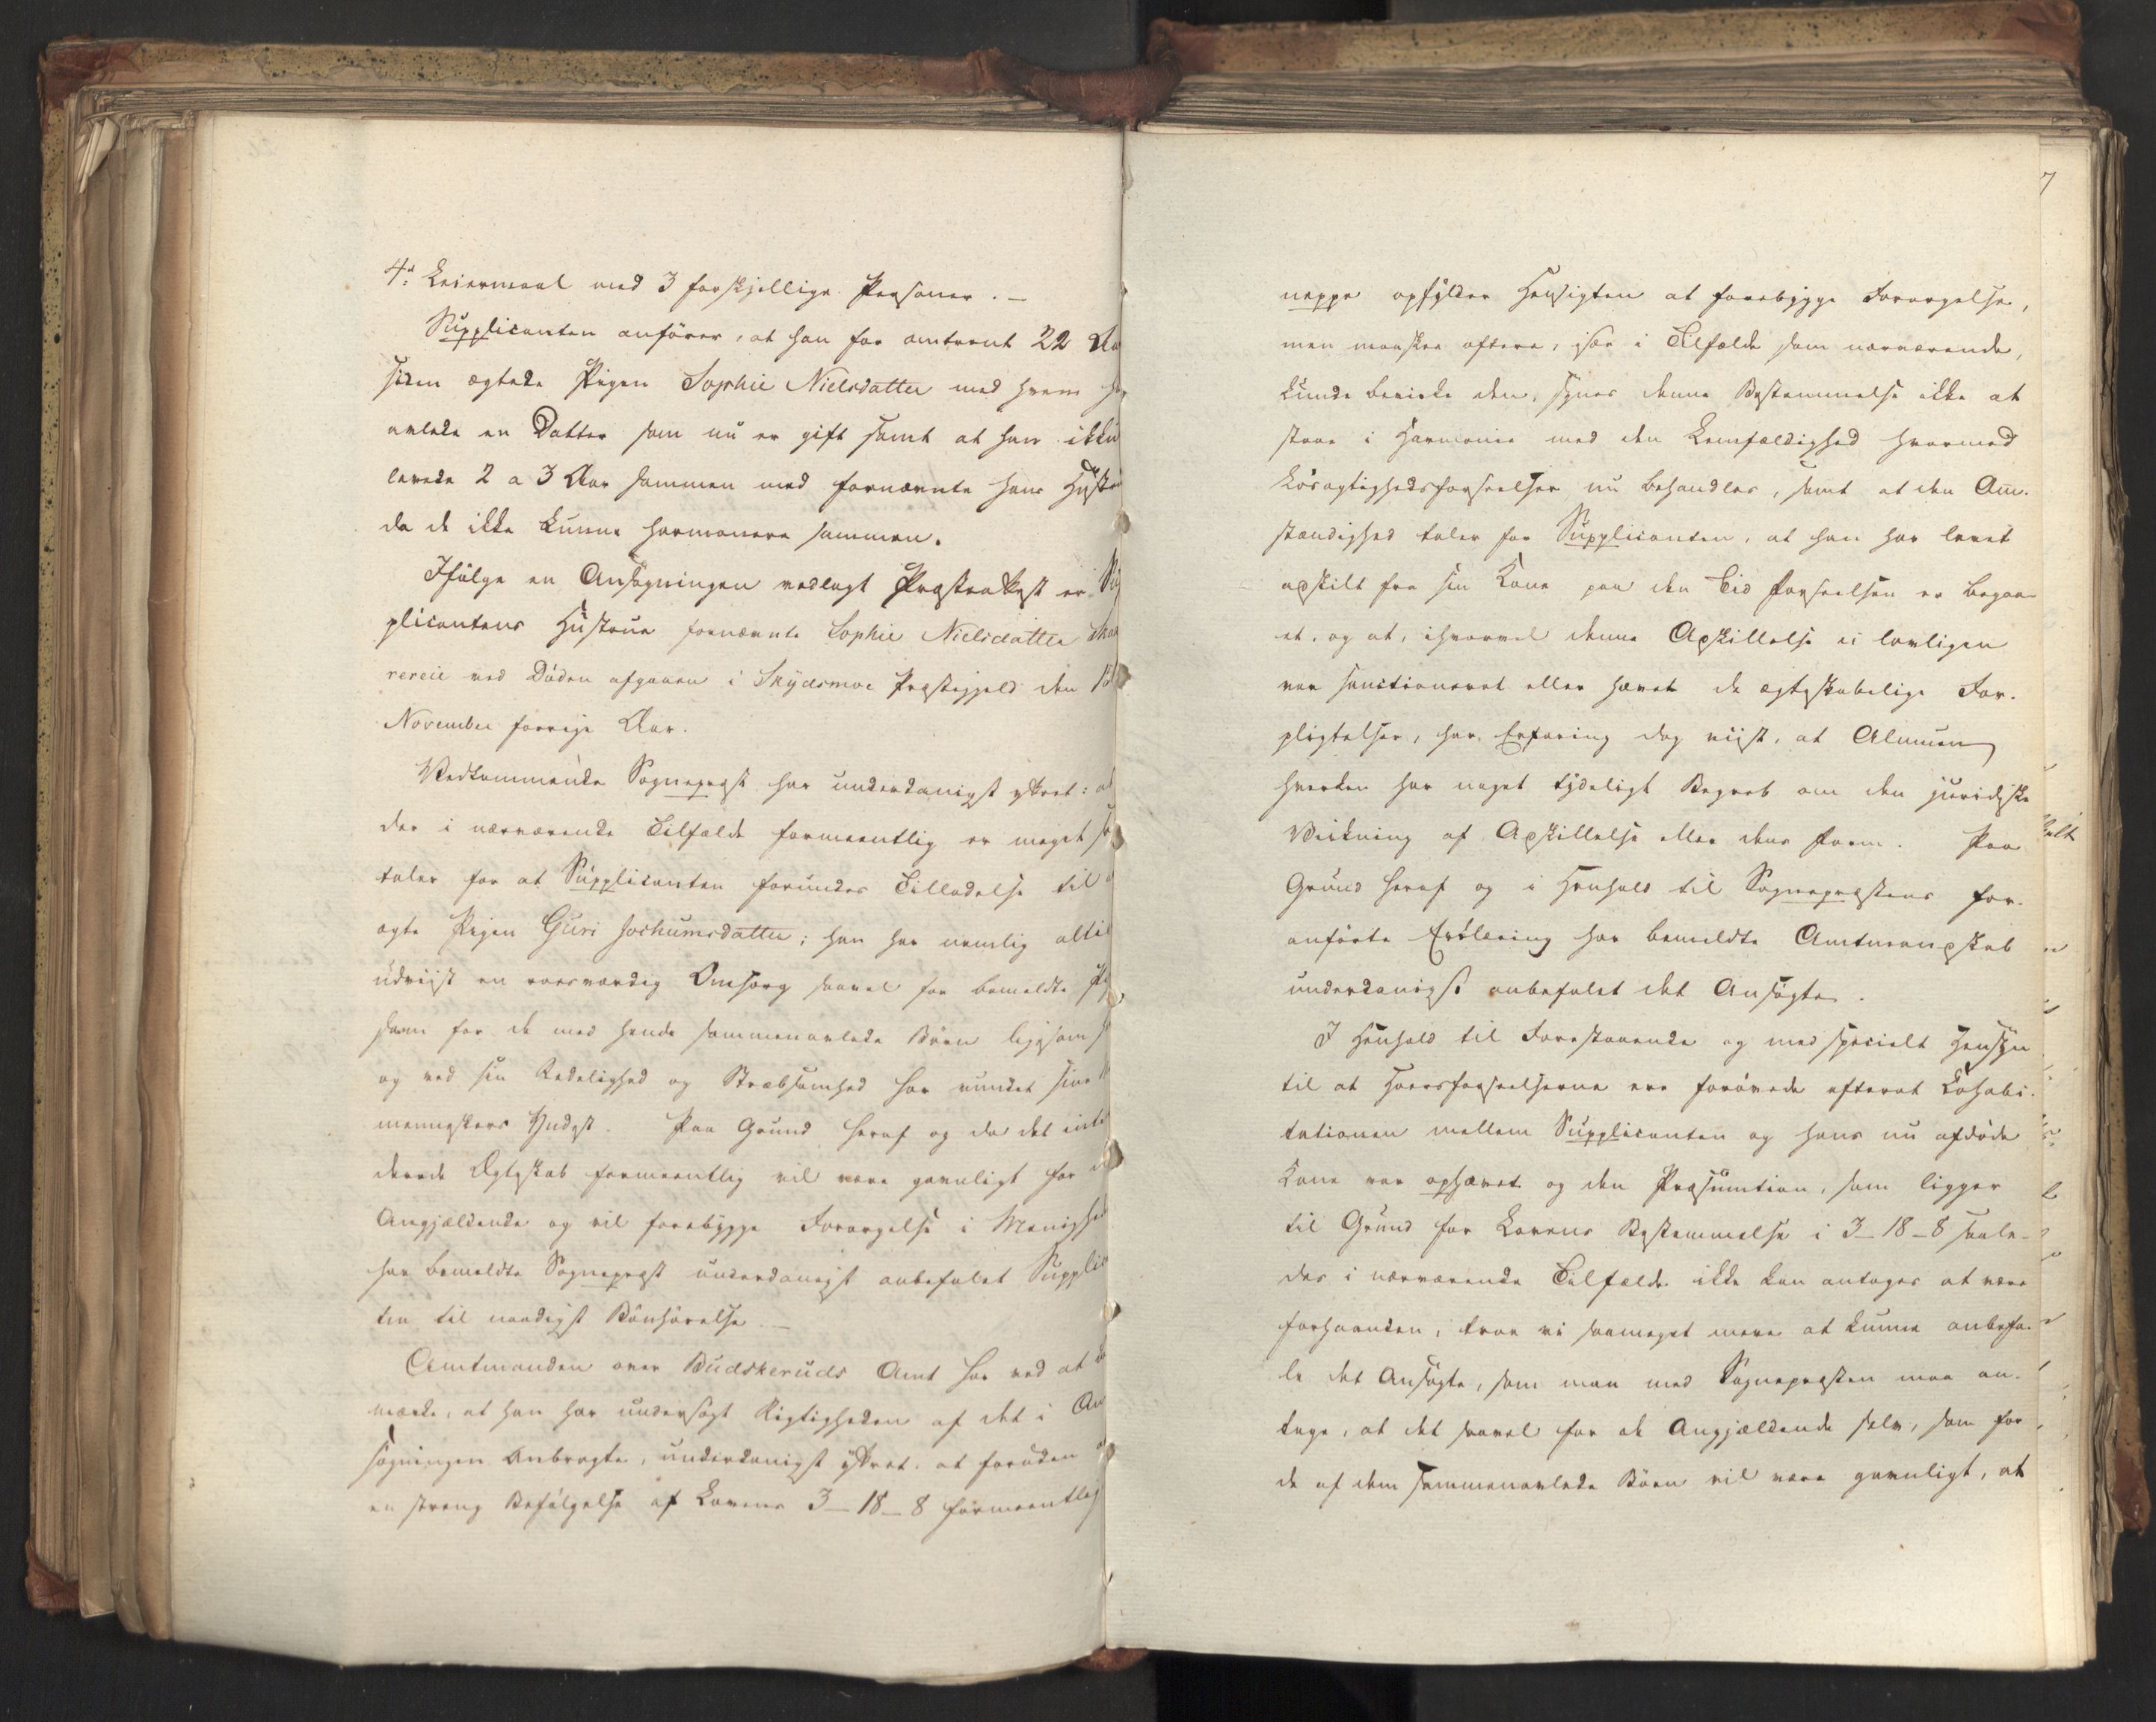 4de Leiermaal med 3 forskjellige Personer. —
Supplicanten anfører, at han for omtrent 22 Aa
siden ægtede Pigen Sophie Nielsdatter med hvem ha
avlede en Datter som nu er gift samt at han ikku
levede 2 a 3 Aar sammen med fornævnte hans Hustru
da de ikke kunne harmonere sammen.
Ifølge en Ansøgningen vedlagt Præsteattest er Sup
plicantens Hustrue fornævnte Sophie Nielsdatter
ved Døden afgaaen i Skydsmoe Præstegjeld den 18
November forrige Aar.
Vedkommende Sognepræst har underdanigst yttret: at
der i nærværende Tilfælde formeentlig er meget s
taler for at Supplicanten forundes Tilladelse til
ægte Pigen Guri Jochumsdatter; han har nemlig altid
udviist en roesværdig Omsorg saavel for bemeldte Pi
som for de med hende sammenavlede Børn ligesom h
og ved sin Redelighed og Stræbsomhed har vundet sine
menneskers Yndest. Paa Grund heraf og da det inten
derede Ægteskab formeentlig vil være gavnligt for d
Angjældende og vil forebygge Forargelse i Menighed
har bemeldte Sognepræst underdanigst anbefalet Supplican
ten til naadigst Bønhørelse. —
Amtmanden over Budskeruds Amt har ved at be
mærke, at han har undersøgt Rigtigheden af det i An
søgningen Anbragte, underdanigst yttret. at foruden
en streng Befølgelse af Lovens 3–18–8 formeentlig
7
neppe opfylder Hensigten at forebygge Forargelse,
men maaskee oftere, især i Tilfælde som nærværende,
kunde bevirke den, synes denne Bestemmelse ikke at
staae i Harmonie med den Lemfældighed hvormed
Løsagtighedsforseelser nu behandles, samt at den Om-
stændighed taler for Supplicanten, at han har levet
adskilt fra sin Kone paa den Tid Forseelsen er begaa-
et, og at, ihvorvel denne Adskillelse ei lovligen
var sanctioneret eller hævet de ægteskabelige For-
pligtelser, har Erfaring dog viist, at Almuen
hverken har noget tydeligt Begreb om den juridiske
Virkning af Adskillelse eller dens Form. Paa
Grund heraf og i Henhold til Sognepræstens for-
anførte Erklæring har bemeldte Amtmandskab
underdanigst anbefalet det Ansøgte.
I Henhold til Forestaaende og med specielt Hensyn
til at Hoersforseelserne ere forøvede efterat Cohabi-
tationen mellem Supplicanten og hans nu afdøde
Kone var ophævet og den Præsumtion, som ligger
til Grund for Lovens Bestemmelse i 3–18–8 saale-
des i nærværende Tilfælde ikke kan antages at være
forhaanden, troe vi saameget mere at kunne anbefa-
le det Ansøgte, som man med Sognepræsten maa an-
tage, at det saavel for de Angjældende selv, som for
de af dem sammenavlede Børn vil være gavnligt, at